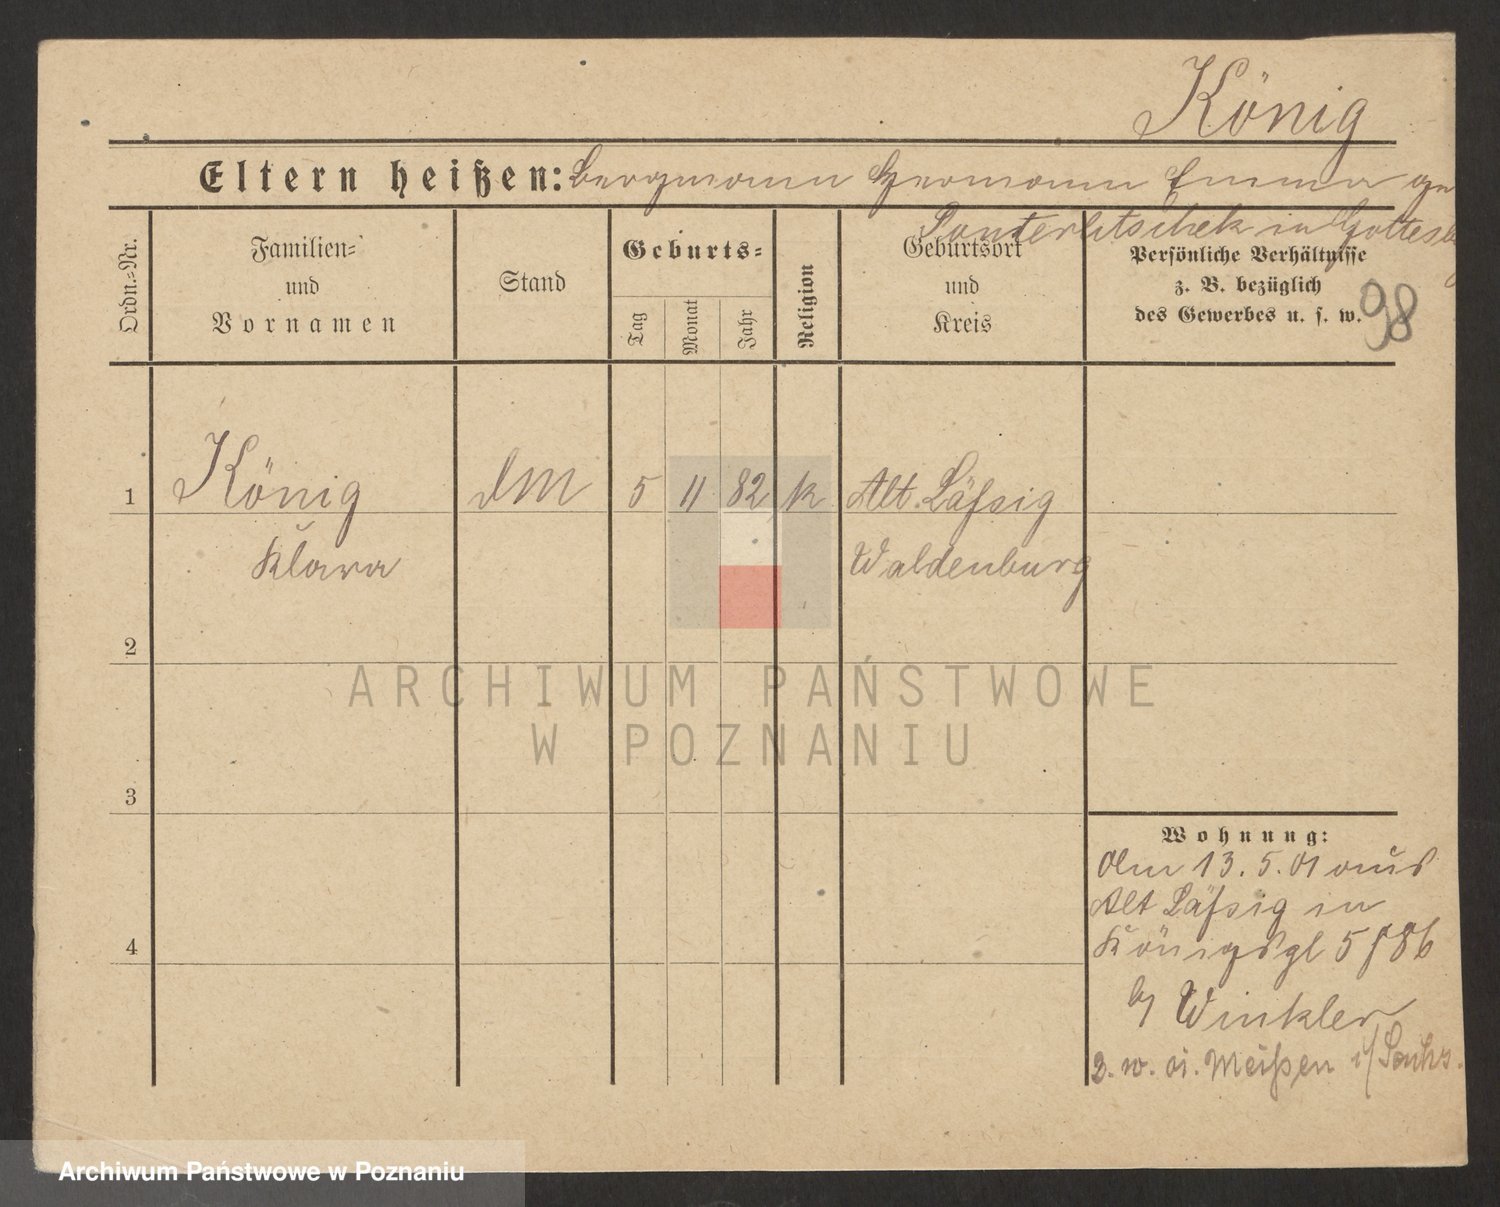 König
Eltern heißen: Bergmann Hermann Emma ge
in Gottesb
Ordn.=Nr.
Familien=
und
Vornamen
Stand
Geburts=
Tag
Monat
Jahr
Religion
Geburtsort
und
Kreis
Persönliche Verhältnisse
z. B. bezüglich
des Gewerbes u. s. w.
98
1 König DM 5 11 82 k Alt. Läßig
Klara Waldenburg
2
3
4
Wohnung:
Am 13.5.01 aus
Alt Läßig in
Königspl 5 / 86
b/ Winkler
Z. w. n. Meißen i/ Sachs.
ARCHIWUM PAŃSTWOWE
W POZNANIU
Archiwum Państwowe w Poznaniu